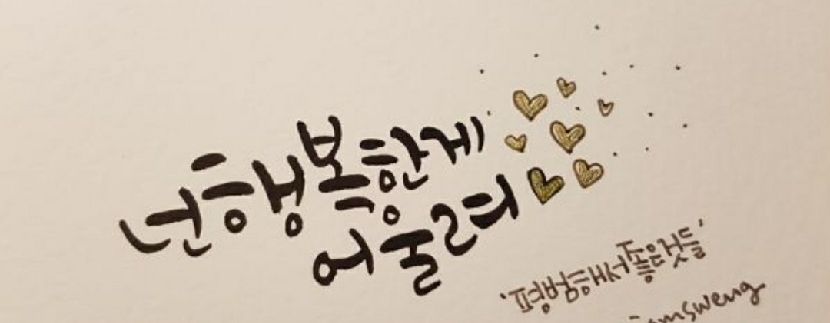 넌 행복한게
어울려
'평범해서 좋은것들'